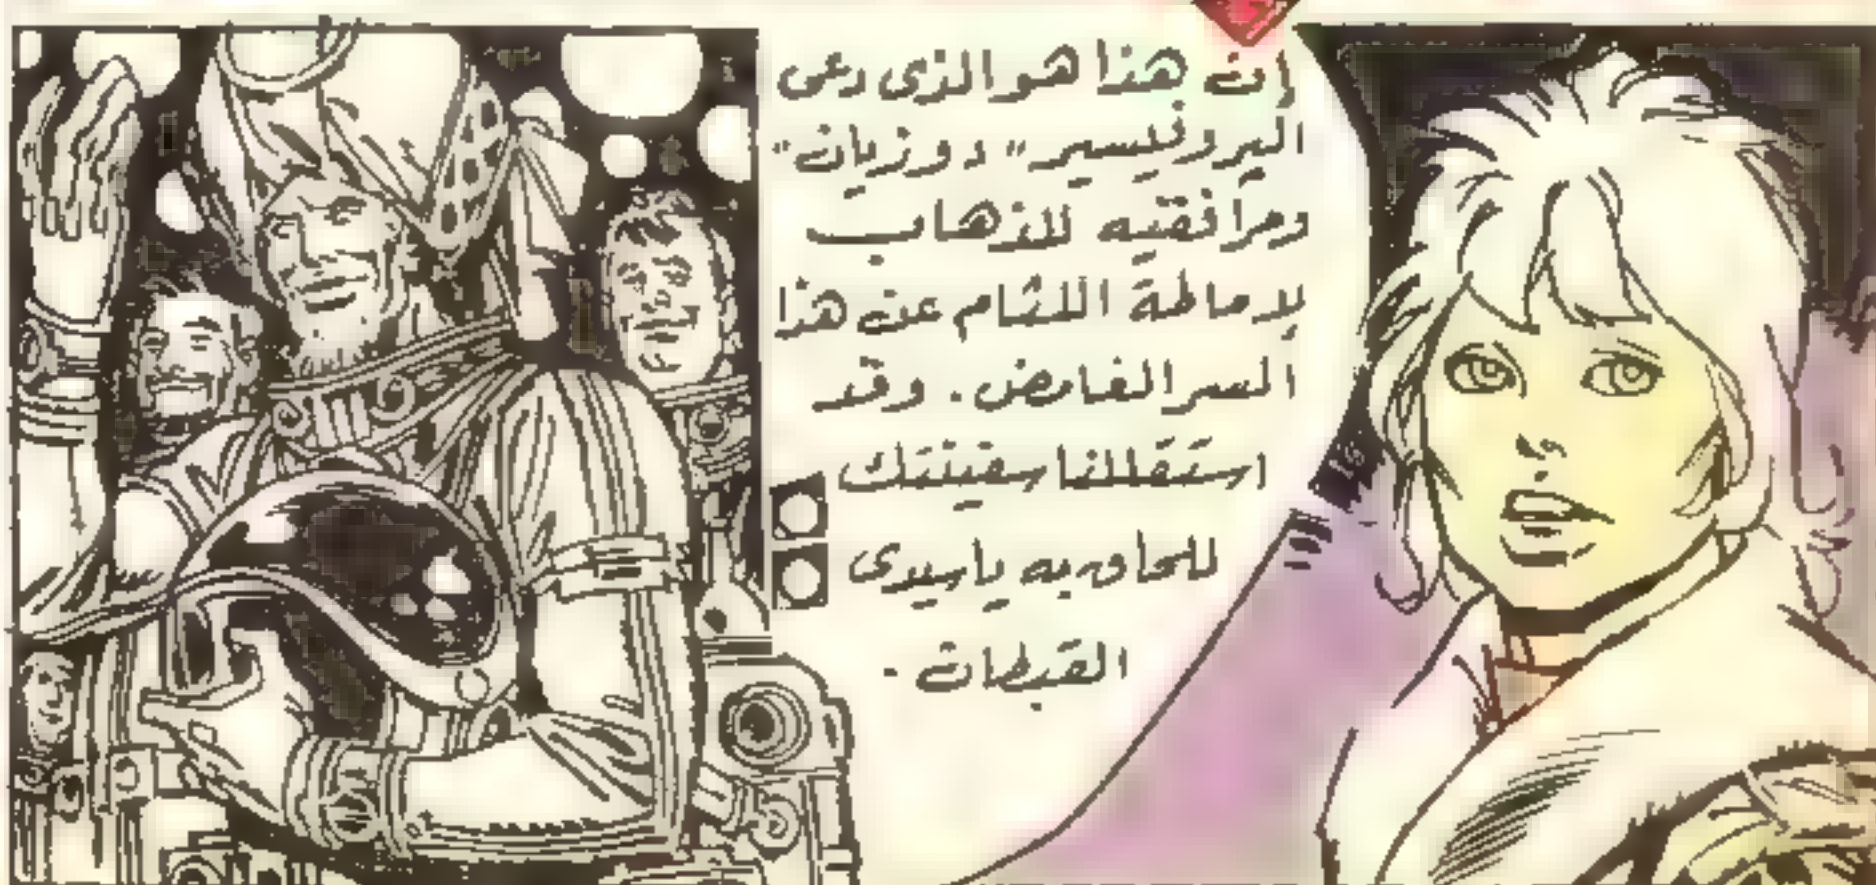 إن هذا هو الذى دعى
البروفيسير "دوزيان"
ومرافقتيه للذهاب
لإماطة اللثام عن هذا
السر الغامض. وقد
استقللنا سفينتك
للحاق به ياسيدى
القبطان.